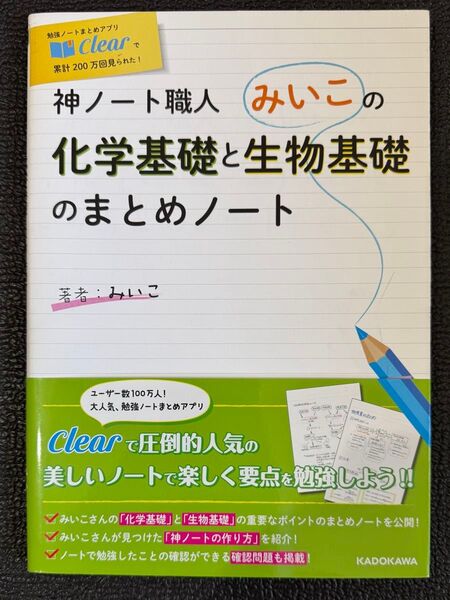 勉強ノートまとめアプリ
Clearで
累計200万回見られた!
神ノート職人 みいこの
化学基礎と生物基礎
のまとめノート
著者:みいこ
ユーザー数100万人!
大人気、勉強ノートまとめアプリ
Clearで圧倒的人気の
美しいノートで楽しく要点を勉強しよう!!
みいこさんの「化学基礎」と「生物基礎」の重要なポイントのまとめノートを公開!
みいこさんが見つけた「神ノートの作り方」を紹介!
ノートで勉強したことの確認ができる確認問題も掲載!
KADOKAWA